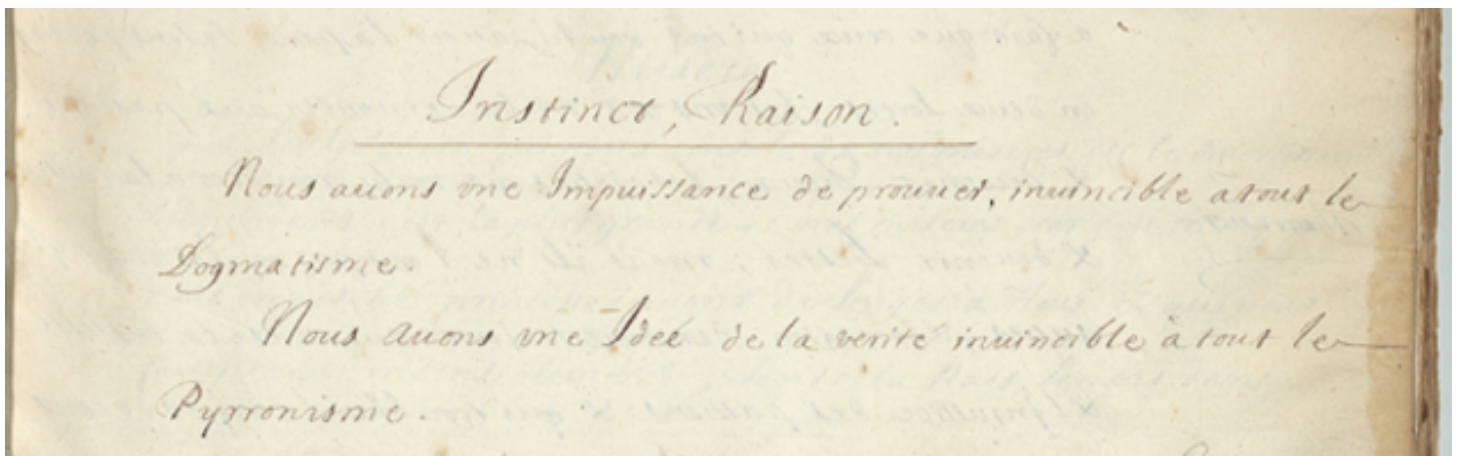 Instinct, Raison.
Nous auons vne Impuissance de prouuer, inuincible a tout le
Dogmatisme.
Nous auons vne Ideé de la verité inuincible à tout le
Pyrronisme.